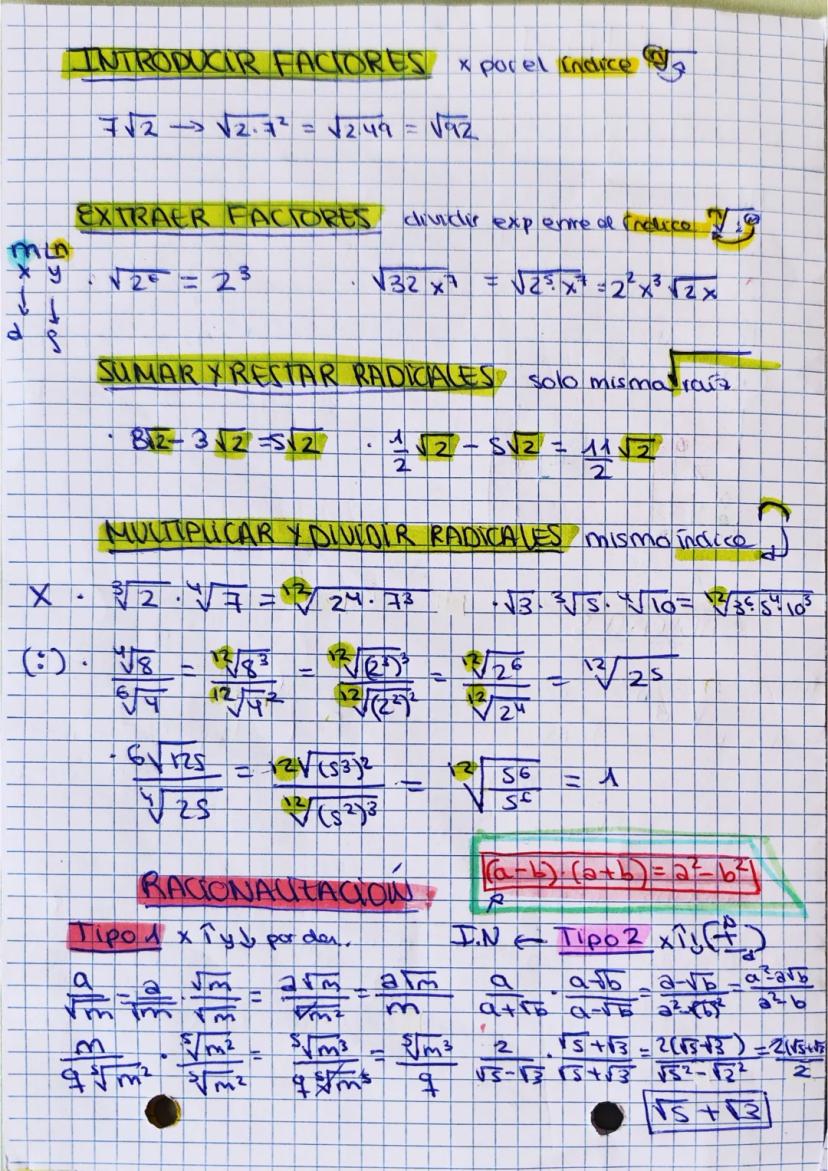 INTRODUCIR FACTORES x por el índice
7√2 → √2·7² = √2·49 = √92
EXTRAER FACTORES dividir exp entre el índice
m n
x y
↓ ↓
d
· √2⁶ = 2³ · √32x⁷ = √2⁵·x⁷ = 2²x³√2x
SUMAR Y RESTAR RADICALES solo misma raíz
· 8√2 - 3√2 = 5√2 · 1/2 √2 - 5√2 = 11/2 √2
MULTIPLICAR Y DIVIDIR RADICALES mismo índice
X · ³√2 · ⁴√7 = ¹²√2⁴·7³ · √3 · ³√5 · ⁴√10 = ¹²√3⁶·5⁴·10³
(:) · ⁴√8 / ⁶√4 = ¹²√8³ / ¹²√4² = ¹²√(2³)³ / ¹²√(2²)² = ¹²√2⁶ / ¹²√2⁴ = ¹²√2⁵
· ⁶√125 / ⁴√25 = ¹²√(5³)² / ¹²√(5²)³ = ¹²√5⁶/5⁶ = 1
(a-b)·(a+b) = a²-b²
RACIONALIZACIÓN
Tipo 1 x ↑ y ↓ por den. I.N ← Tipo 2 x ↑↓ (±)
a/√m = a/√m · √m/√m = a√m/√m² = a√m/m a/a+√b · a-√b/a-√b = a-√b/a²-(√b)² = a²-a√b/a²-b
m/q⁵√m² · ⁵√m²/⁵√m² = ⁵√m³/q⁵√m⁵ = ⁵√m³/q 2/√5-√3 · √5+√3/√5+√3 = 2(√5+√3)/√5²-√3² = 2(√5+√3)/2
√5 + √3